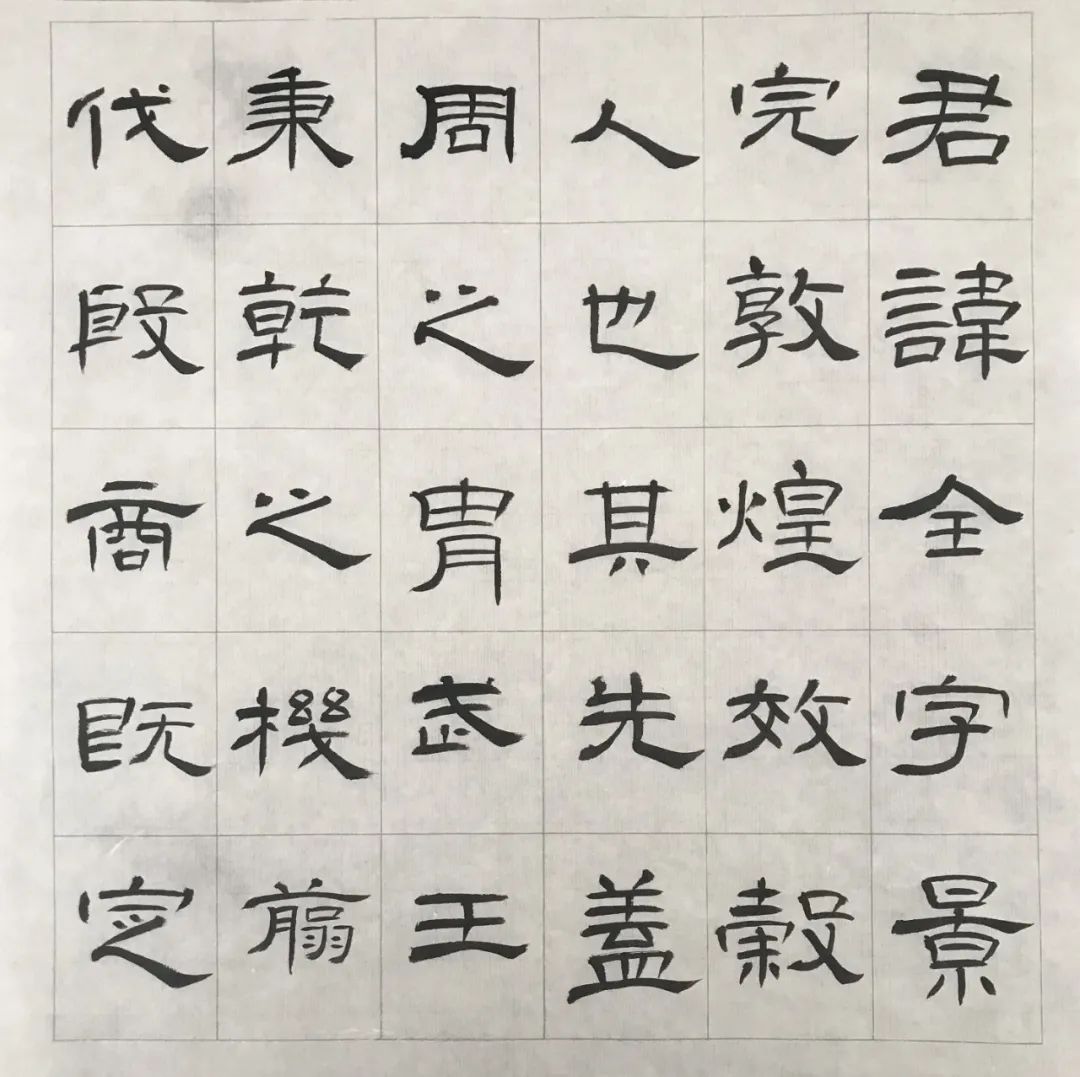 君諱全字景
完敦煌效穀
人也其先蓋
周之胄武王
秉乾之機翦
伐殷商既定